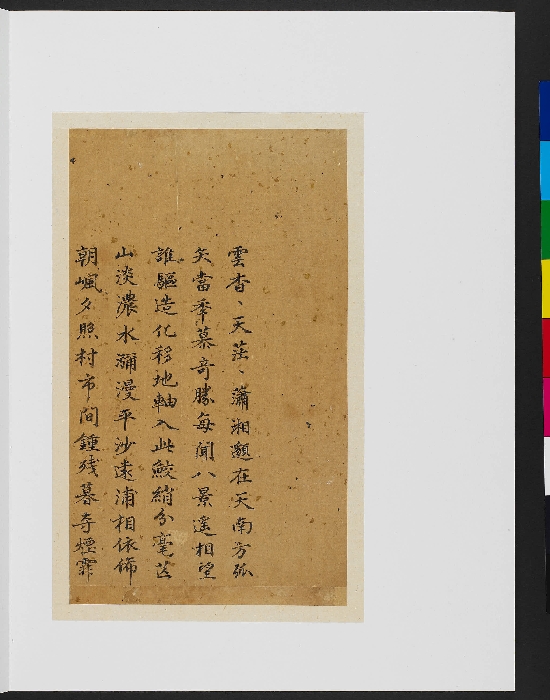 雲杳〻天茫〻瀟湘在天南方弧
矢當秊慕奇勝每聞八景遙相望
誰驅造化移地軸入此鮫綃分毫芒
山淡濃水瀰漫平沙遠浦相依俙
朝嵐夕照村市間鍾殘暮寺煙霏